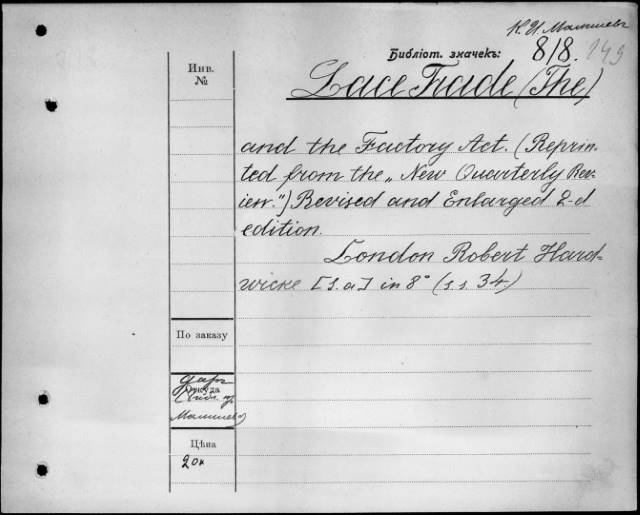 К. И. Малышевъ
Библіот. значекъ: 8/8. 149
Инв.
№
Lace Trade (The)
and the Factory Act. (Reprin-
ted from the „New Quarterly Rev-
iew.") Revised and Enlarged 2-d
edition.
London Robert Hard-
wicke [s.a] in 8° (s.s. 34)
По заказу
даръ
Откуда
Малышева)
Цѣна
20к